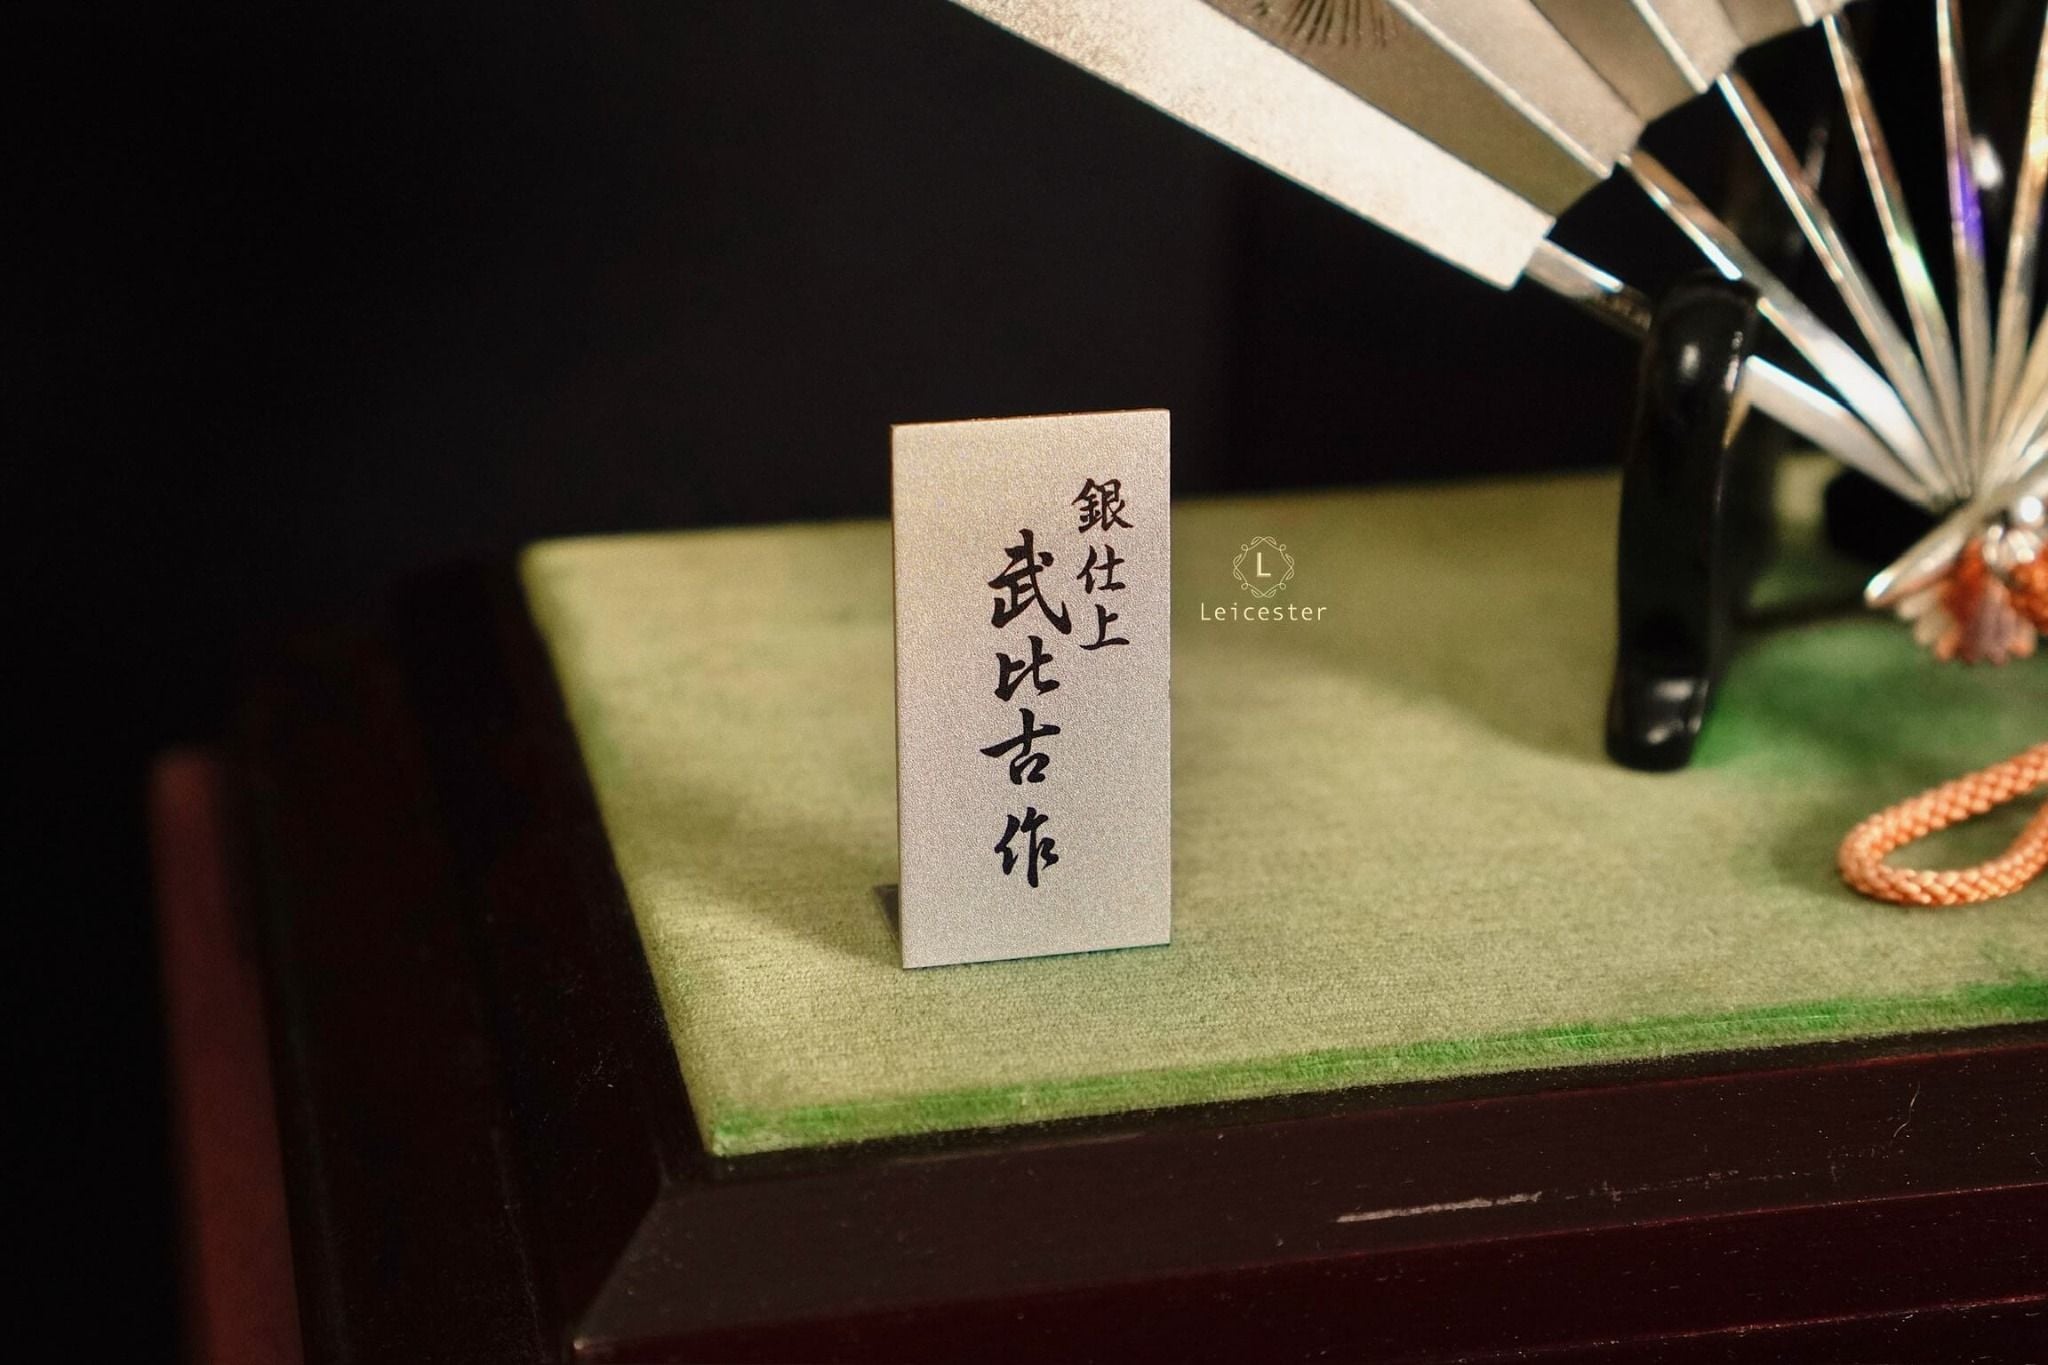 銀仕上
武比古作
L
Leicester